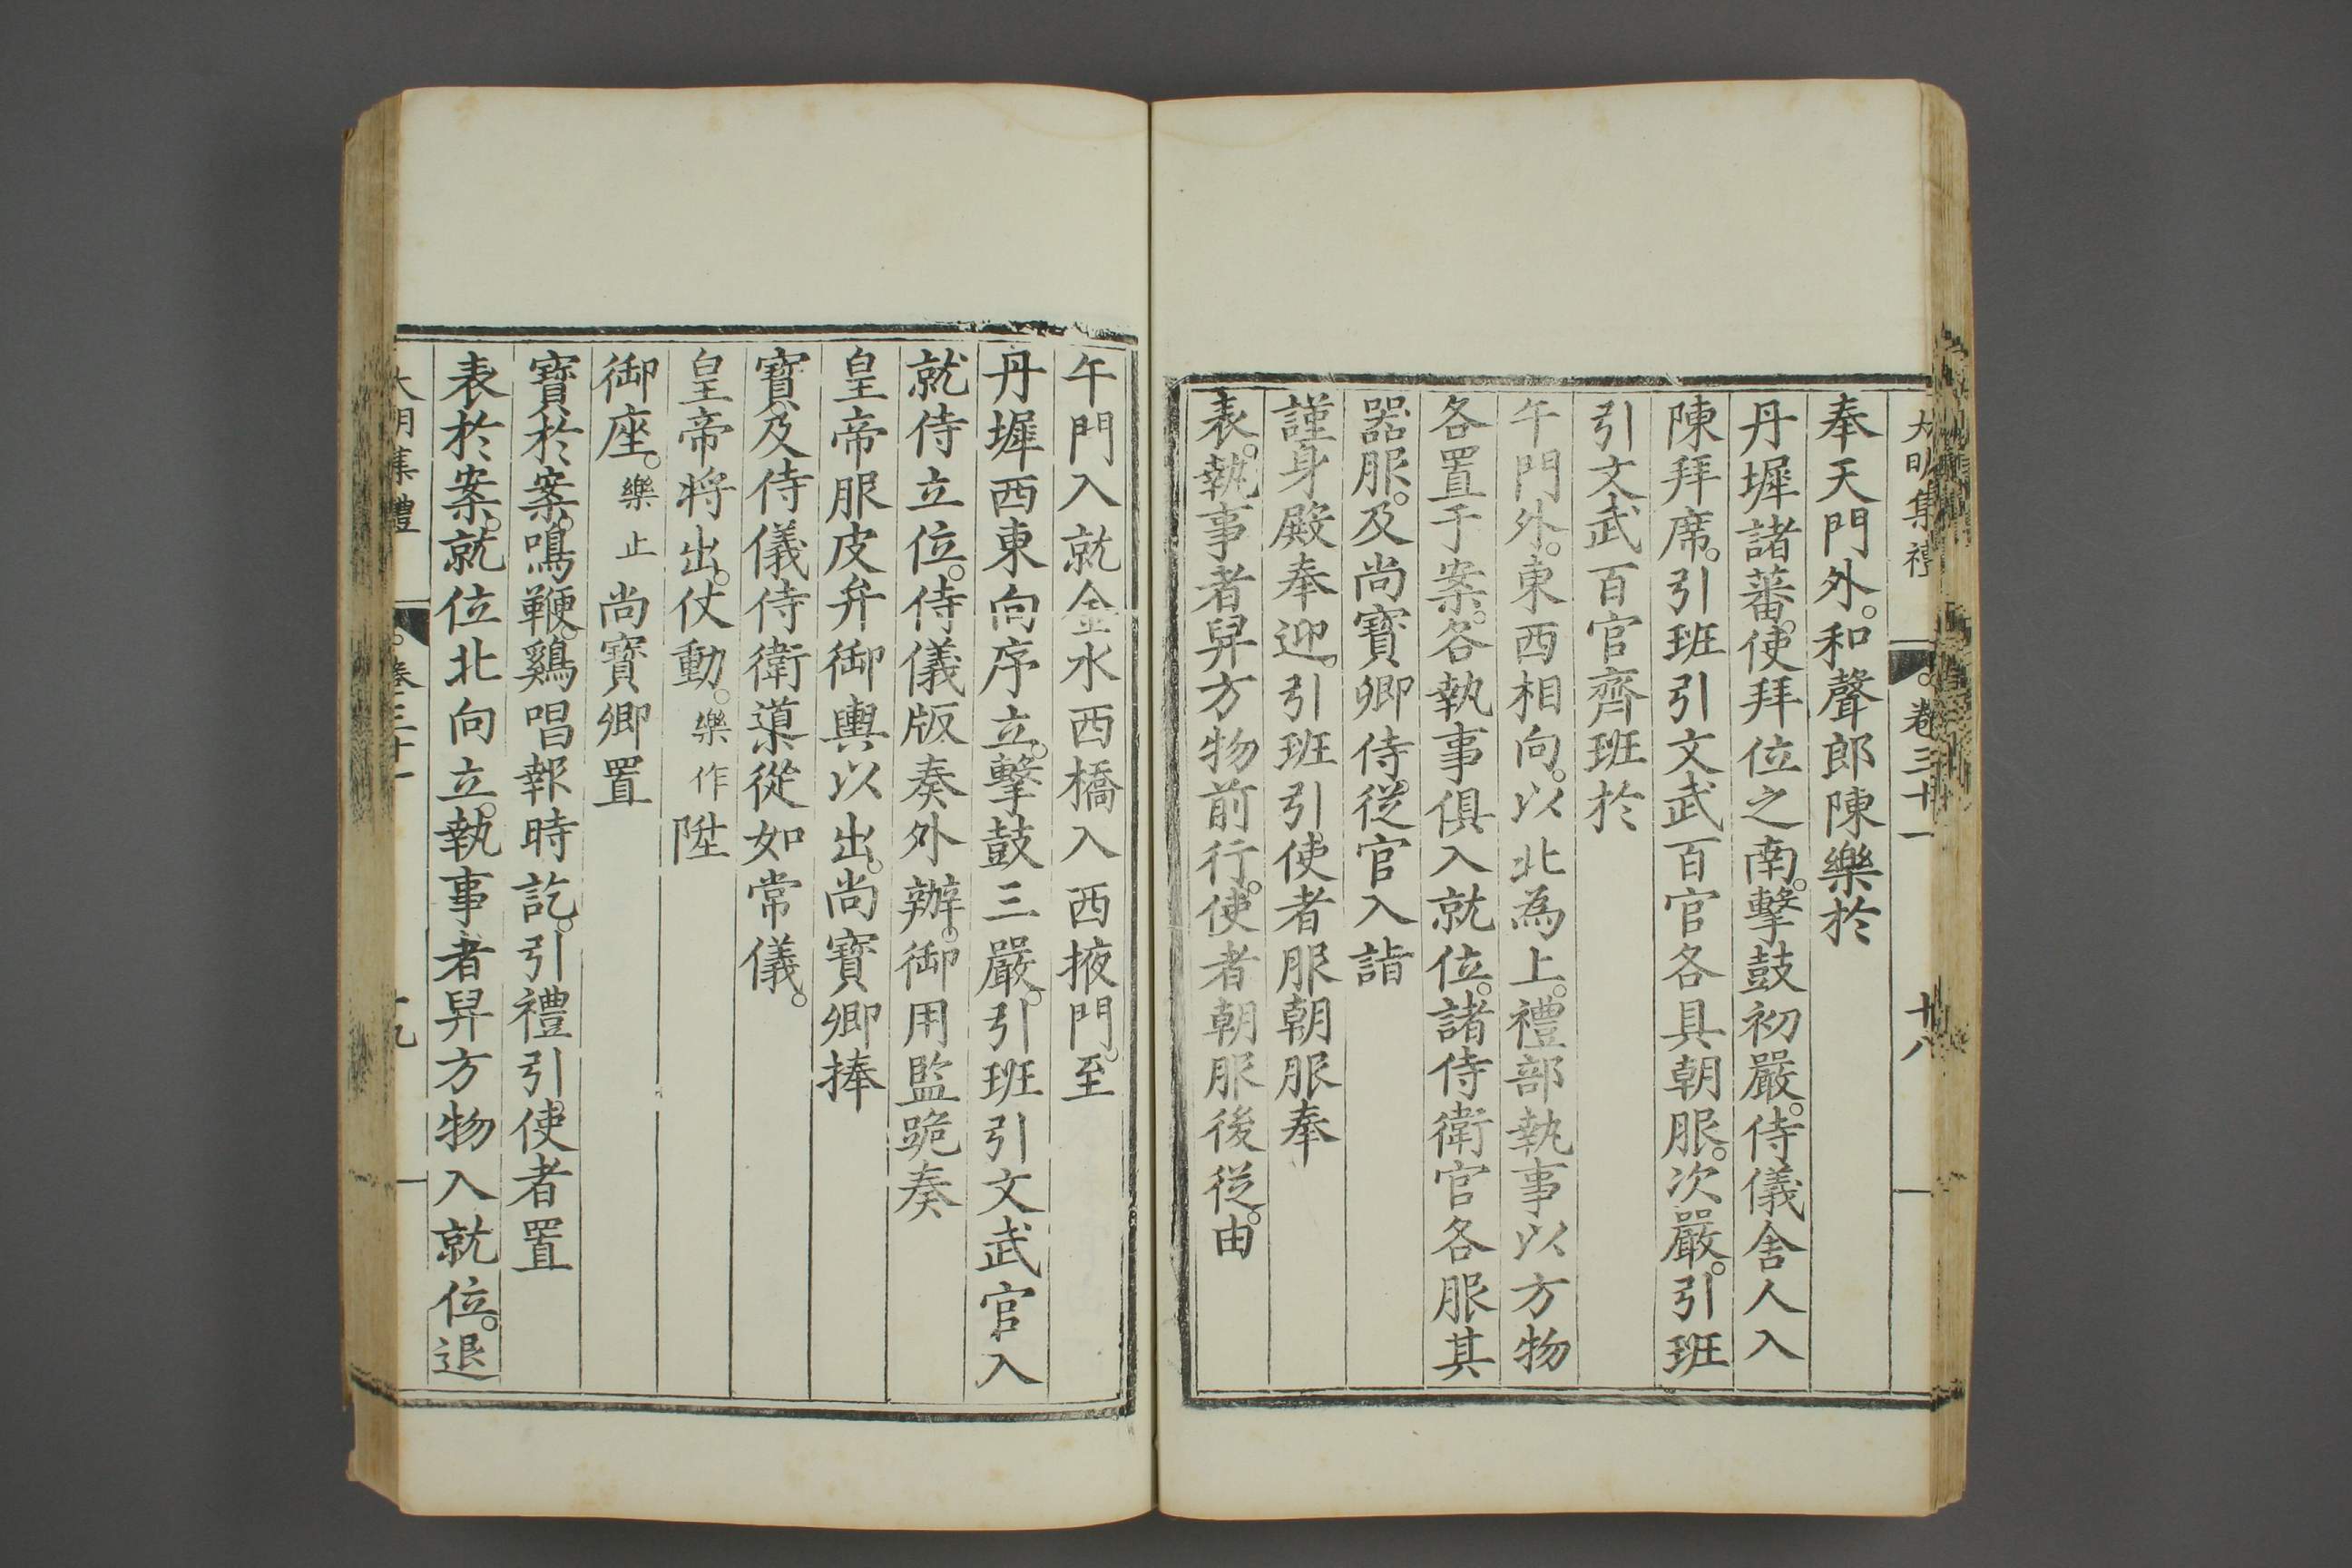 大明集禮 卷三十一 十八
奉天門外。和聲郎陳樂於
丹墀諸蕃使拜位之南。擊鼓初嚴。侍儀舍人入
陳拜席。引班引文武百官各具朝服。次嚴。引班
引文武百官齊班於
午門外。東西相向。以北為上。禮部執事以方物
各置于案。各執事俱入就位。諸侍衛官各服其
器服。及尚寶卿侍從官入詣
謹身殿奉迎。引班引使者服朝服奉
表。執事者舁方物前行。使者朝服後從。由
午門入就金水西橋入西掖門。至
丹墀西東向序立。擊鼓三嚴。引班引文武官入
就侍立位。侍儀版奏外辦。御用監跪奏
皇帝服皮弁御輿以出。尚寶卿捧
寶及侍儀侍衛導從如常儀。
皇帝將出。仗動。樂作陞
御座。樂止尚寶卿置
寶於案。鳴鞭。鷄唱報時訖。引禮引使者置
表於案。就位北向立。執事者舁方物入就位。退
大明集禮 卷三十一 十九